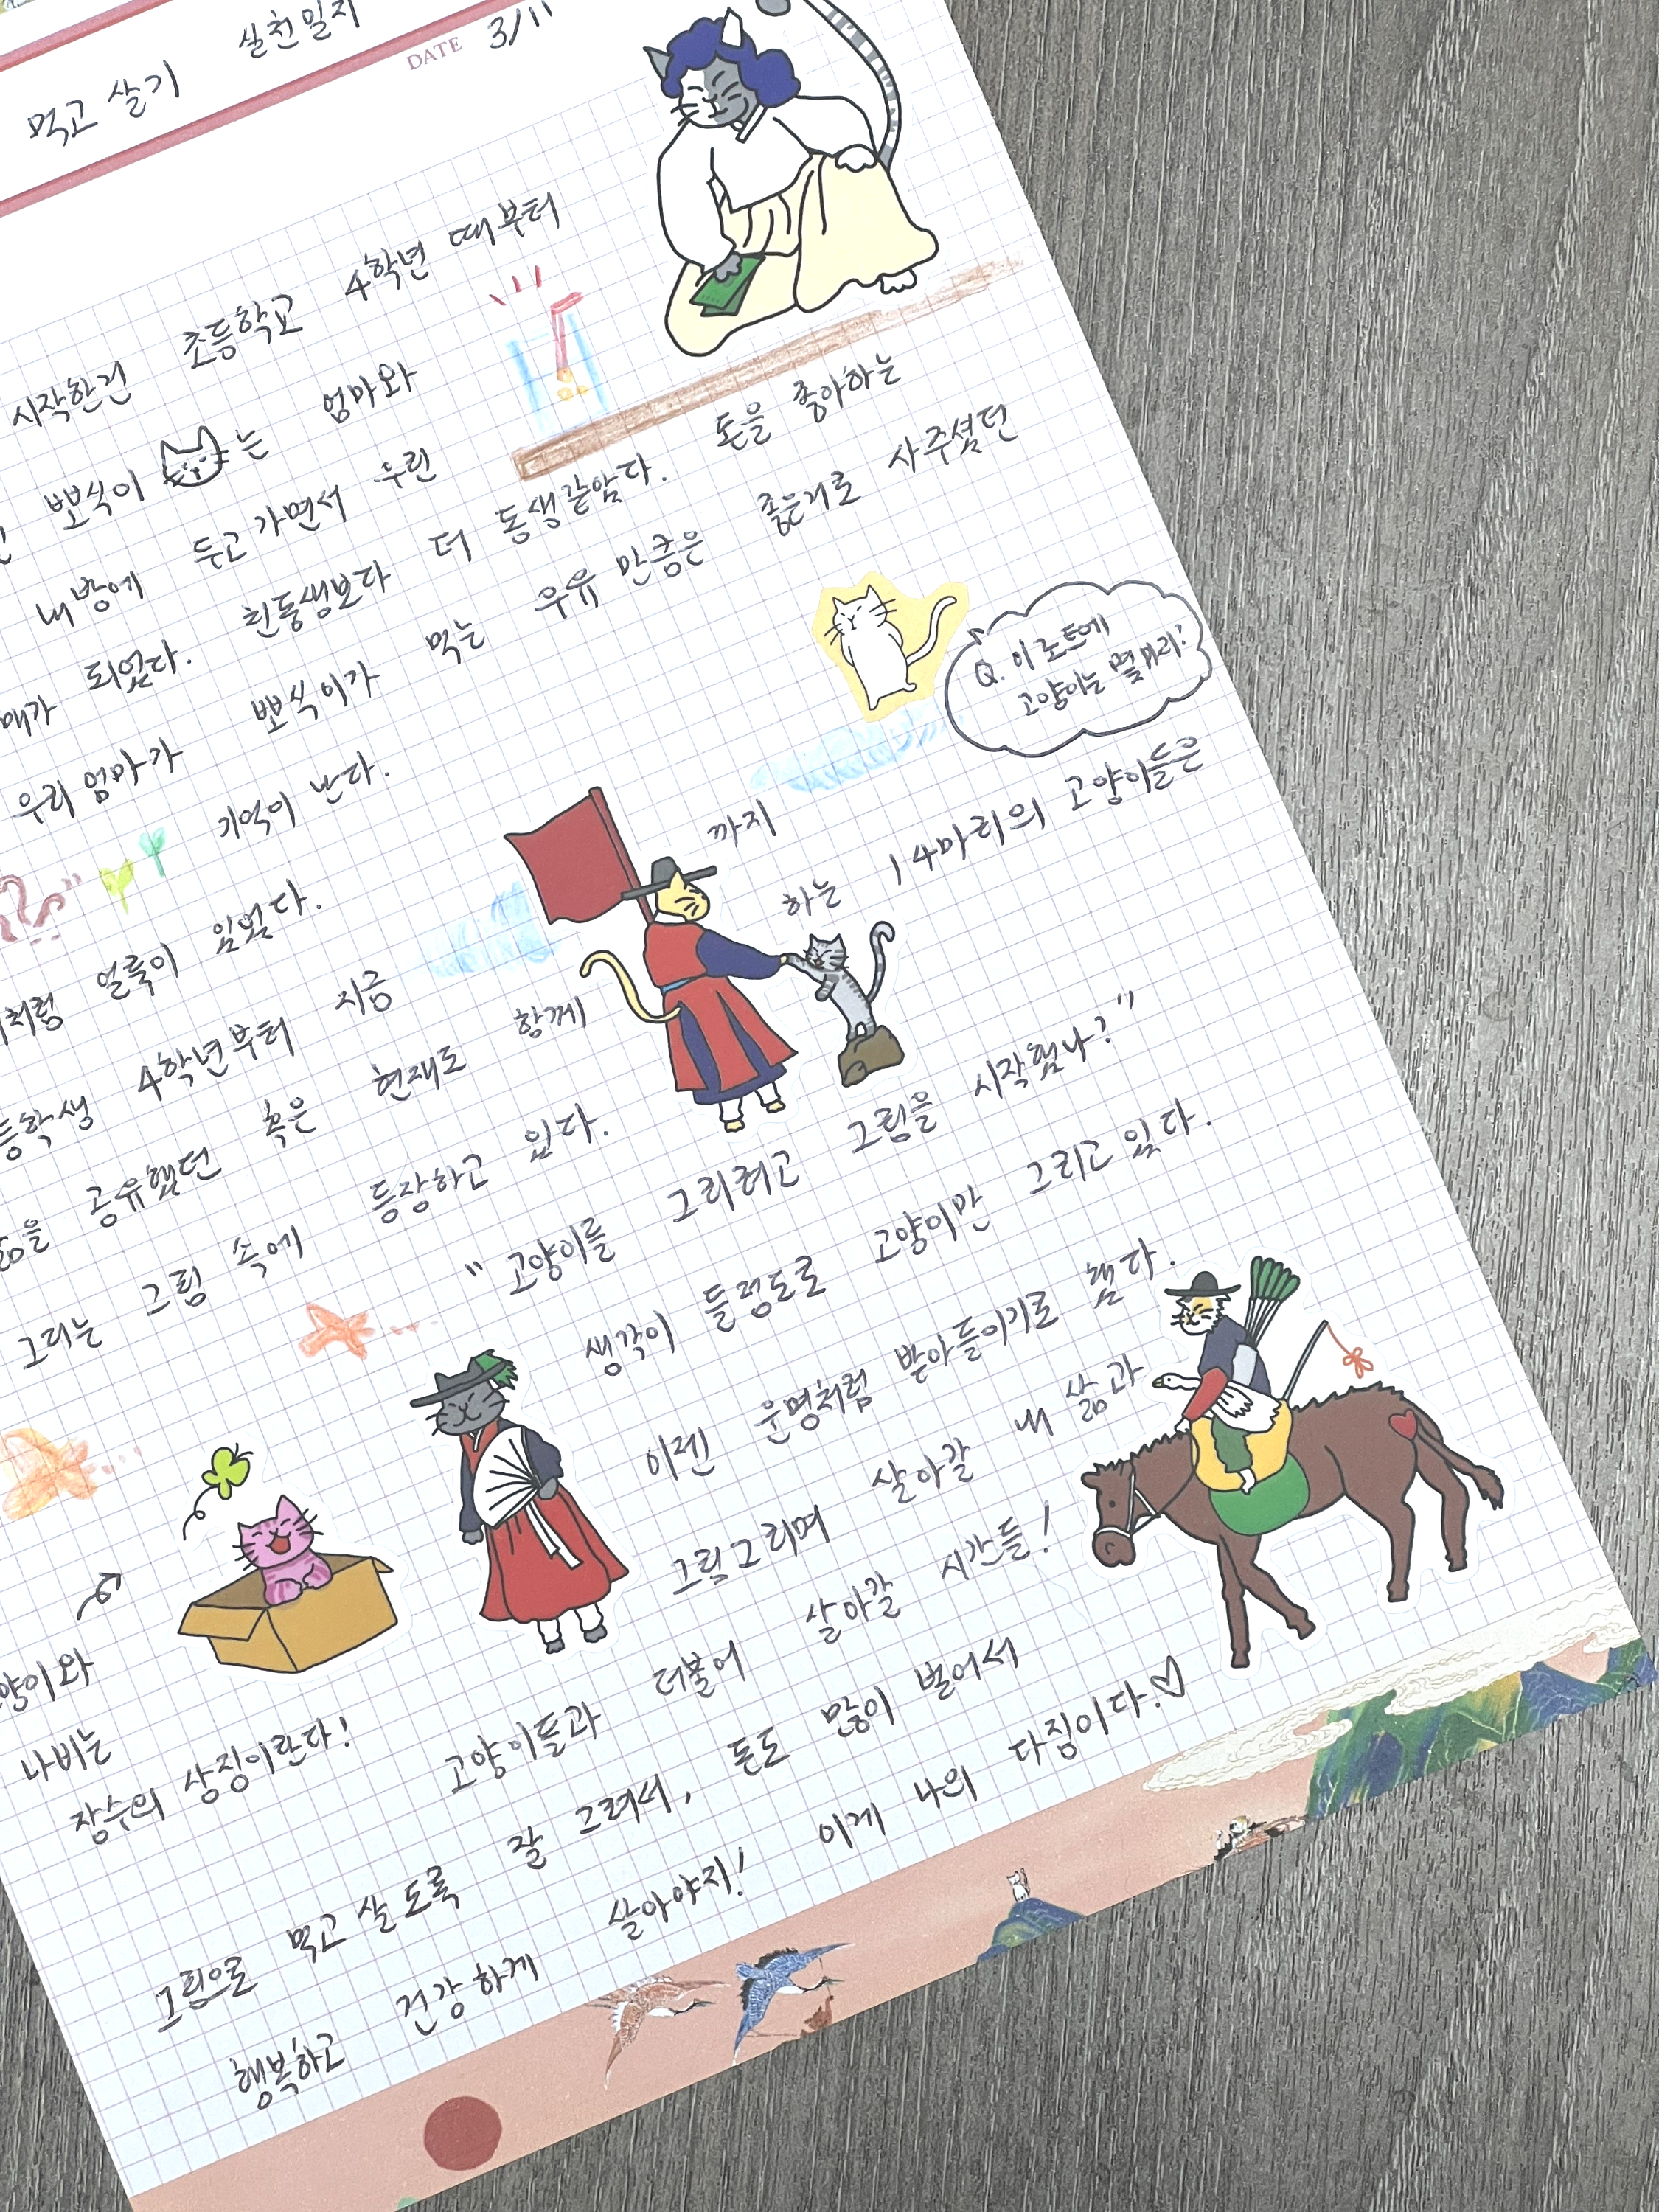 실천일지
먹고 살기
DATE 3/11
시작한건 초등학교 4학년 때부터
뽀식이 는 엄마와
내 방에 두고가면서 우린
매가 되었다. 친동생보다 더 동생같았다. 돈을 좋아하는
우리 엄마가 뽀식이가 먹는 우유 만큼은 좋은거로 사주셨던
기억이 난다.
Q. 이 노트에
고양이는 몇마리?
처럼 얼룩이 있었다.
등학생 4학년부터 지금 까지
삶을 공유했던 혹은 현재도 함께 하는 14마리의 고양이들은
그리는 그림 속에 등장하고 있다.
"고양이를 그리려고 그림을 시작했나?"
생각이 들정도로 고양이만 그리고 있다.
이젠 운명처럼 받아들이기로 했다.
그림그리며 살아갈 내 삶과
고양이들과 더불어 살아갈 시간들!
양이와
나비는
장수의 상징이란다!
그림으로 먹고 살도록 잘 그려서, 돈도 많이 벌어서
행복하고 건강하게 살아야지! 이게 나의 다짐이다.♡